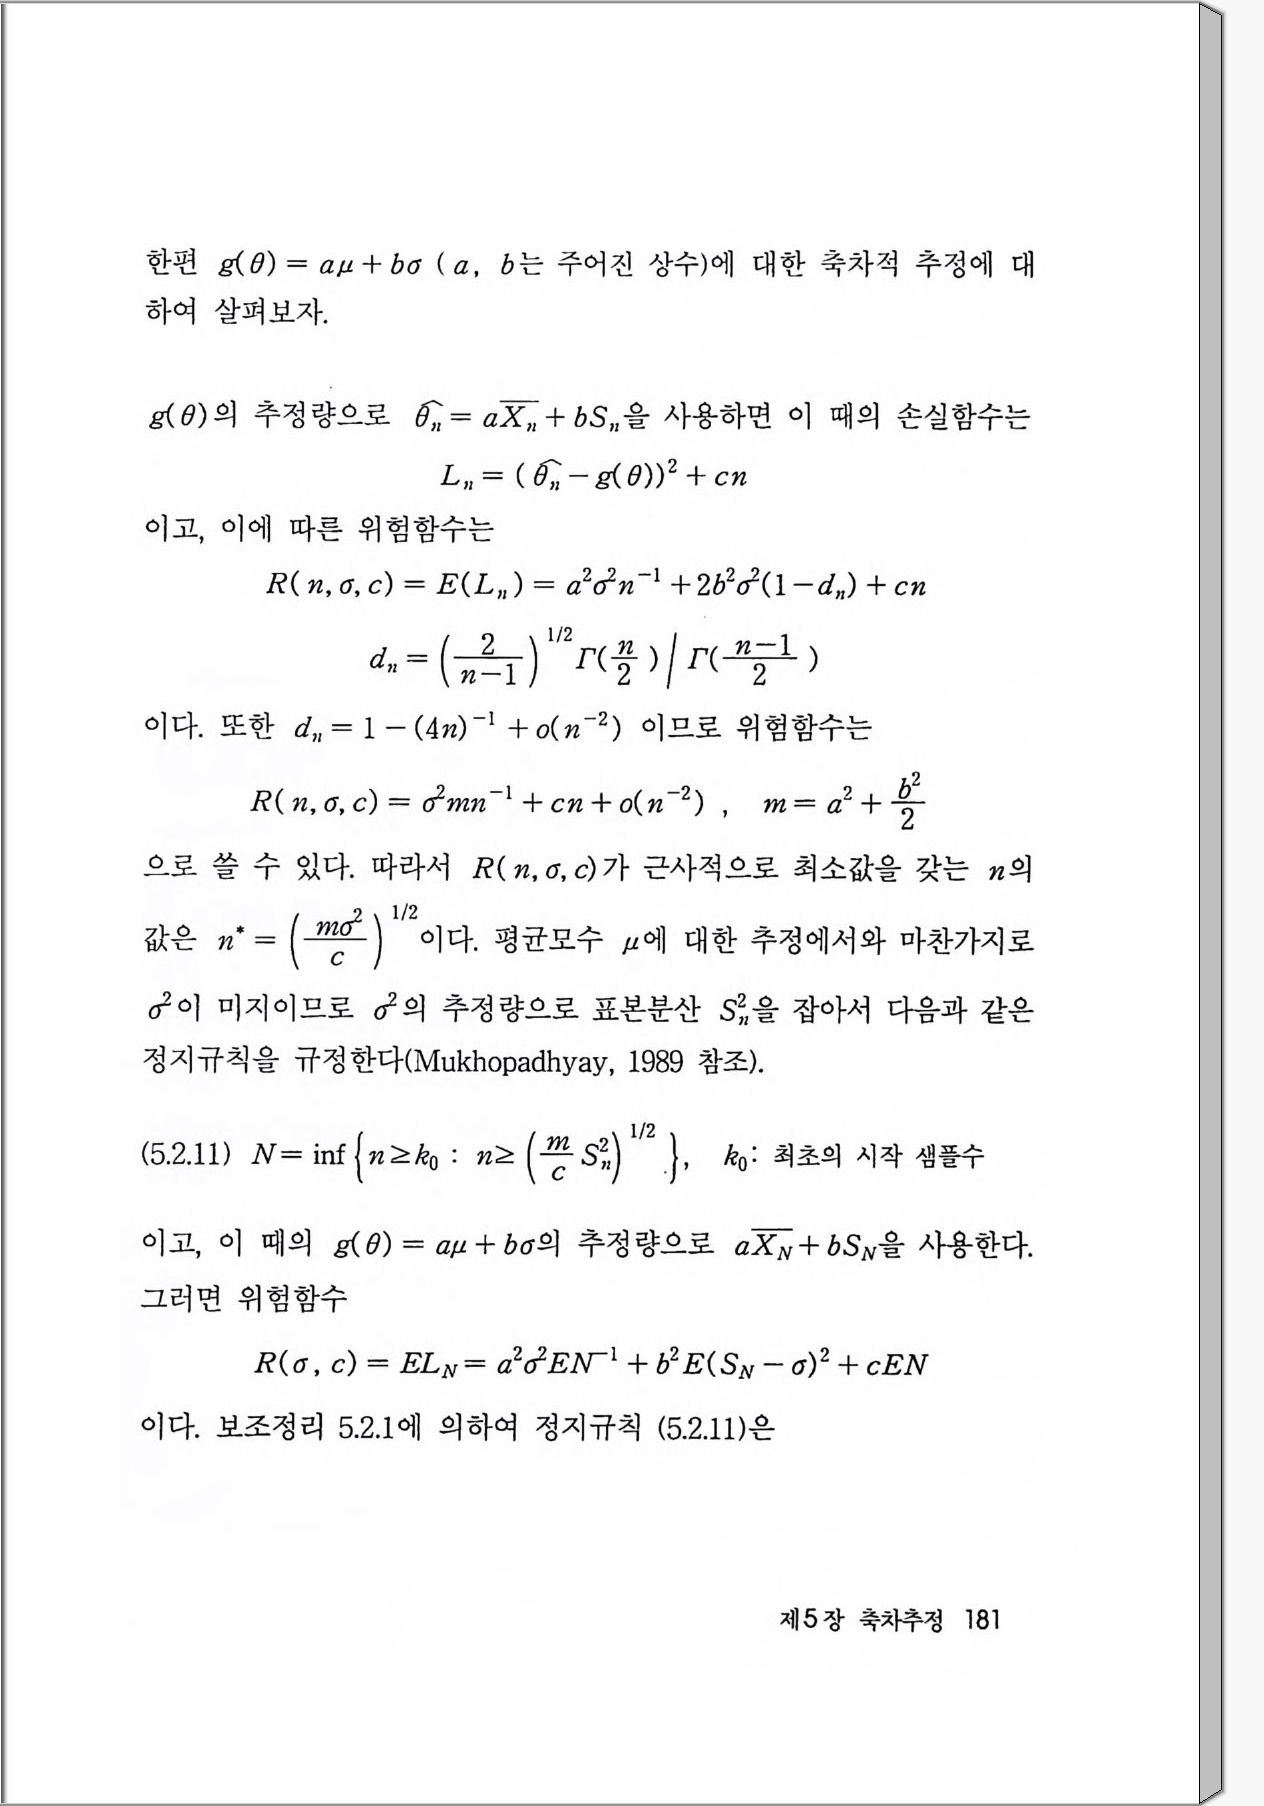 한편 g(θ) = aμ + bσ ( a, b는 주어진 상수)에 대한 축차적 추정에 대
하여 살펴보자.
g(θ)의 추정량으로 \hat{θ_n} = a\overline{X_n} + bS_n을 사용하면 이 때의 손실함수는
L_n = ( \hat{θ_n} − g(θ))^2 + cn
이고, 이에 따른 위험함수는
R( n, σ, c) = E(L_n) = a^2σ^2n^{-1} + 2b^2σ^2(1−d_n) + cn
d_n = (\frac{2}{n−1})^{1/2} Γ(\frac{n}{2}) / Γ(\frac{n−1}{2})
이다. 또한 d_n = 1 − (4n)^{-1} + o(n^{-2}) 이므로 위험함수는
R( n, σ, c) = σ^2mn^{-1} + cn + o(n^{-2}) , m = a^2 + \frac{b^2}{2}
으로 쓸 수 있다. 따라서 R( n, σ, c)가 근사적으로 최소값을 갖는 n의
값은 n^* = (\frac{mσ^2}{c})^{1/2}이다. 평균모수 μ에 대한 추정에서와 마찬가지로
σ^2이 미지이므로 σ^2의 추정량으로 표본분산 S_n^2을 잡아서 다음과 같은
정지규칙을 규정한다(Mukhopadhyay, 1989 참조).
(5.2.11) N = inf {n ≥ k_0 : n ≥ (\frac{m}{c} S_n^2)^{1/2} }, k_0: 최초의 시작 샘플수
이고, 이 때의 g(θ) = aμ + bσ의 추정량으로 a\overline{X_N} + bS_N을 사용한다.
그러면 위험함수
R(σ, c) = EL_N = a^2σ^2EN^{-1} + b^2E(S_N − σ)^2 + cEN
이다. 보조정리 5.2.1에 의하여 정지규칙 (5.2.11)은
제5장 축차추정 181